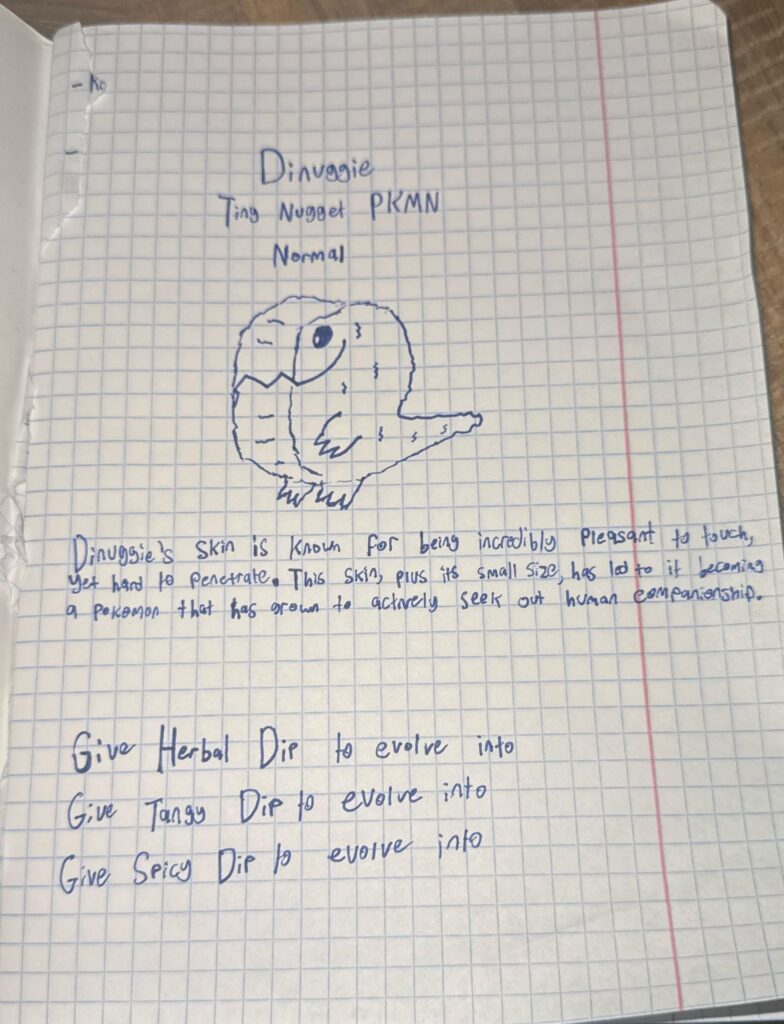 -
-
Dinuggie
Tiny Nugget PKMN
Normal
Dinuggie's skin is known for being incredibly pleasant to touch,
yet hard to penetrate. This skin, plus its small size, has led to it becoming
a pokemon that has grown to actively seek out human companionship.
Give Herbal Dip to evolve into
Give Tangy Dip to evolve into
Give Spicy Dip to evolve into